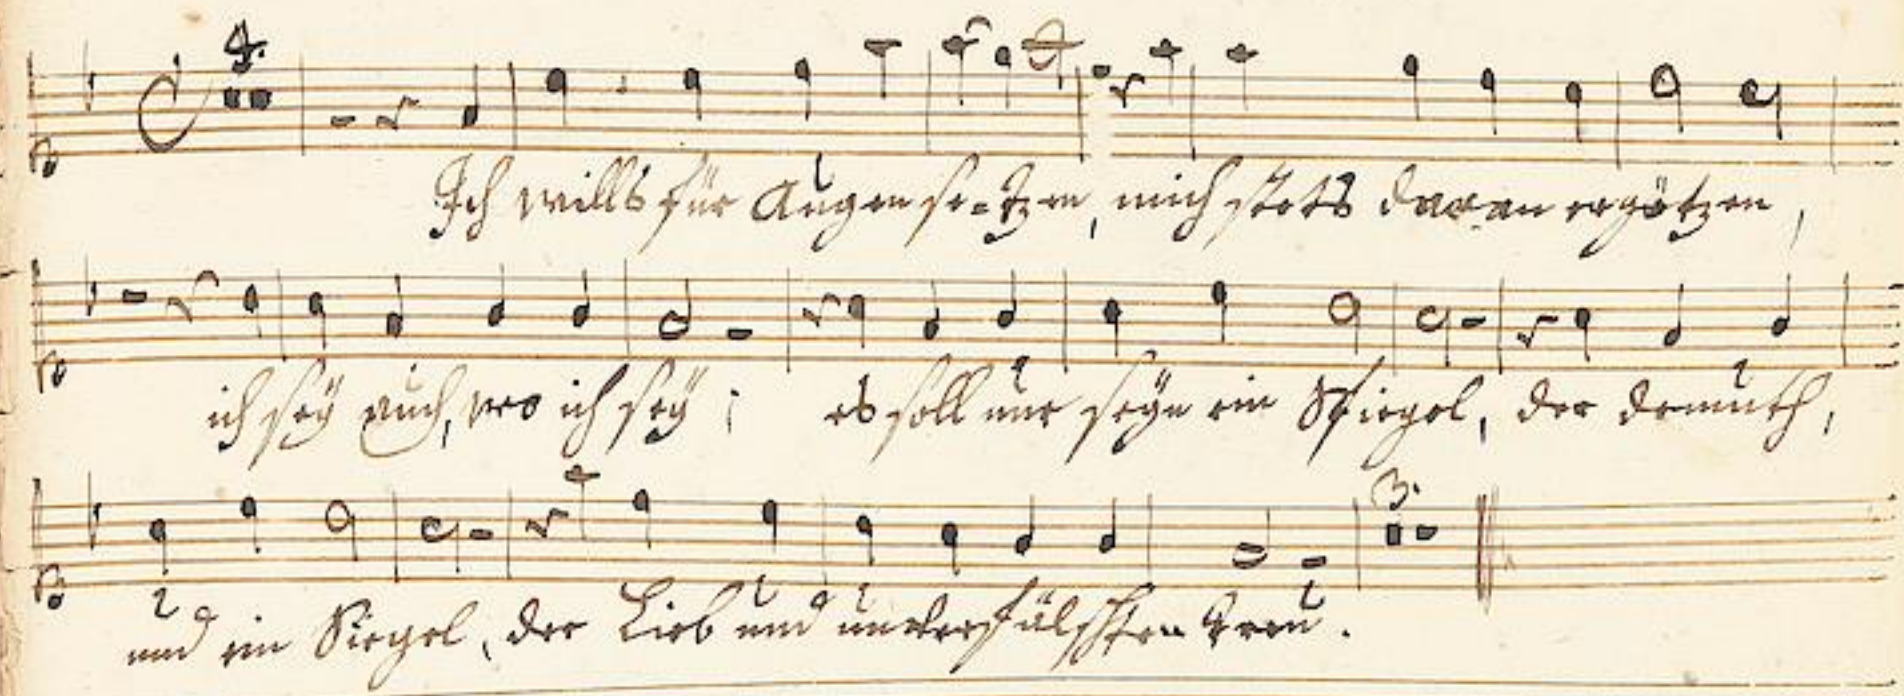 4.
Ich wills für Augen se-tzen, mich stets daran ergötzen,
ich sey auch, wo ich sey; es soll mir seyn ein Spiegel, der demuth,
3.
und ein Siegel, der Lieb und unverfälschten treu.